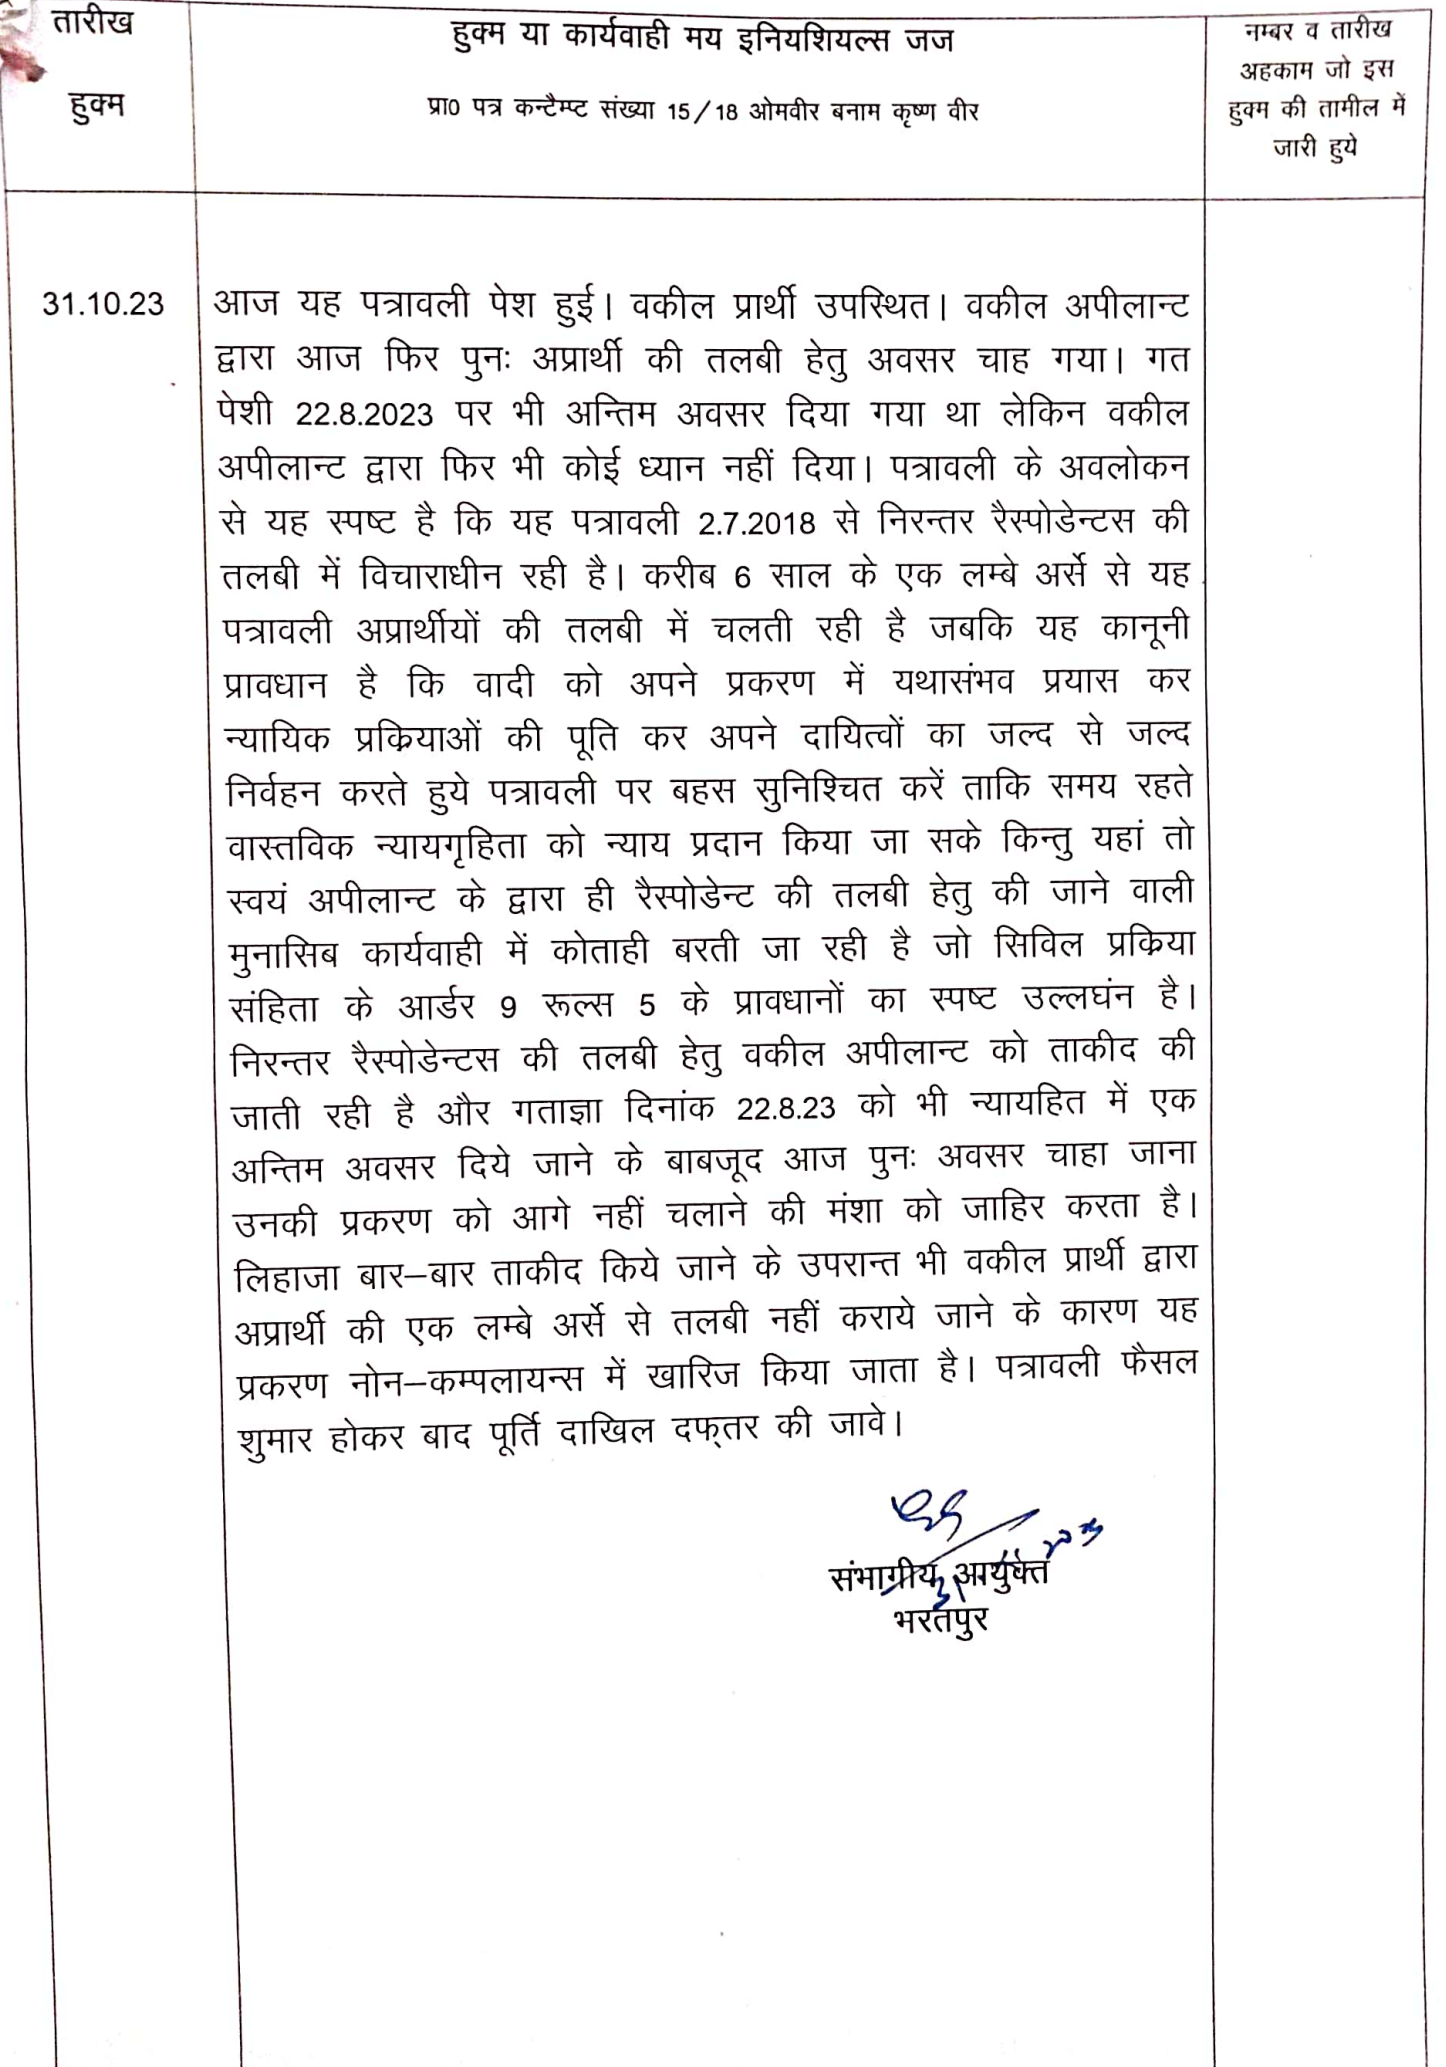 तारीख
हुक्म
हुक्म या कार्यवाही मय इनियशियल्स जज
प्रा0 पत्र कन्टैम्प्ट संख्या 15/18 ओमवीर बनाम कृष्ण वीर
नम्बर व तारीख
अहकाम जो इस
हुक्म की तामील में
जारी हुये
31.10.23
आज यह पत्रावली पेश हुई। वकील प्रार्थी उपस्थित। वकील अपीलान्ट
द्वारा आज फिर पुनः अप्रार्थी की तलबी हेतु अवसर चाह गया। गत
पेशी 22.8.2023 पर भी अन्तिम अवसर दिया गया था लेकिन वकील
अपीलान्ट द्वारा फिर भी कोई ध्यान नहीं दिया। पत्रावली के अवलोकन
से यह स्पष्ट है कि यह पत्रावली 2.7.2018 से निरन्तर रैस्पोडेन्टस की
तलबी में विचाराधीन रही है। करीब 6 साल के एक लम्बे अर्से से यह
पत्रावली अप्रार्थीयों की तलबी में चलती रही है जबकि यह कानूनी
प्रावधान है कि वादी को अपने प्रकरण में यथासंभव प्रयास कर
न्यायिक प्रक्रियाओं की पूति कर अपने दायित्वों का जल्द से जल्द
निर्वहन करते हुये पत्रावली पर बहस सुनिश्चित करें ताकि समय रहते
वास्तविक न्यायगृहिता को न्याय प्रदान किया जा सके किन्तु यहां तो
स्वयं अपीलान्ट के द्वारा ही रैस्पोडेन्ट की तलबी हेतु की जाने वाली
मुनासिब कार्यवाही में कोताही बरती जा रही है जो सिविल प्रक्रिया
संहिता के आर्डर 9 रूल्स 5 के प्रावधानों का स्पष्ट उल्लघंन है।
निरन्तर रैस्पोडेन्टस की तलबी हेतु वकील अपीलान्ट को ताकीद की
जाती रही है और गताज्ञा दिनांक 22.8.23 को भी न्यायहित में एक
अन्तिम अवसर दिये जाने के बाबजूद आज पुनः अवसर चाहा जाना
उनकी प्रकरण को आगे नहीं चलाने की मंशा को जाहिर करता है।
लिहाजा बार–बार ताकीद किये जाने के उपरान्त भी वकील प्रार्थी द्वारा
अप्रार्थी की एक लम्बे अर्से से तलबी नहीं कराये जाने के कारण यह
प्रकरण नोन–कम्पलायन्स में खारिज किया जाता है। पत्रावली फैसल
शुमार होकर बाद पूर्ति दाखिल दफ्तर की जावे।
संभागीय आयुक्त
भरतपुर